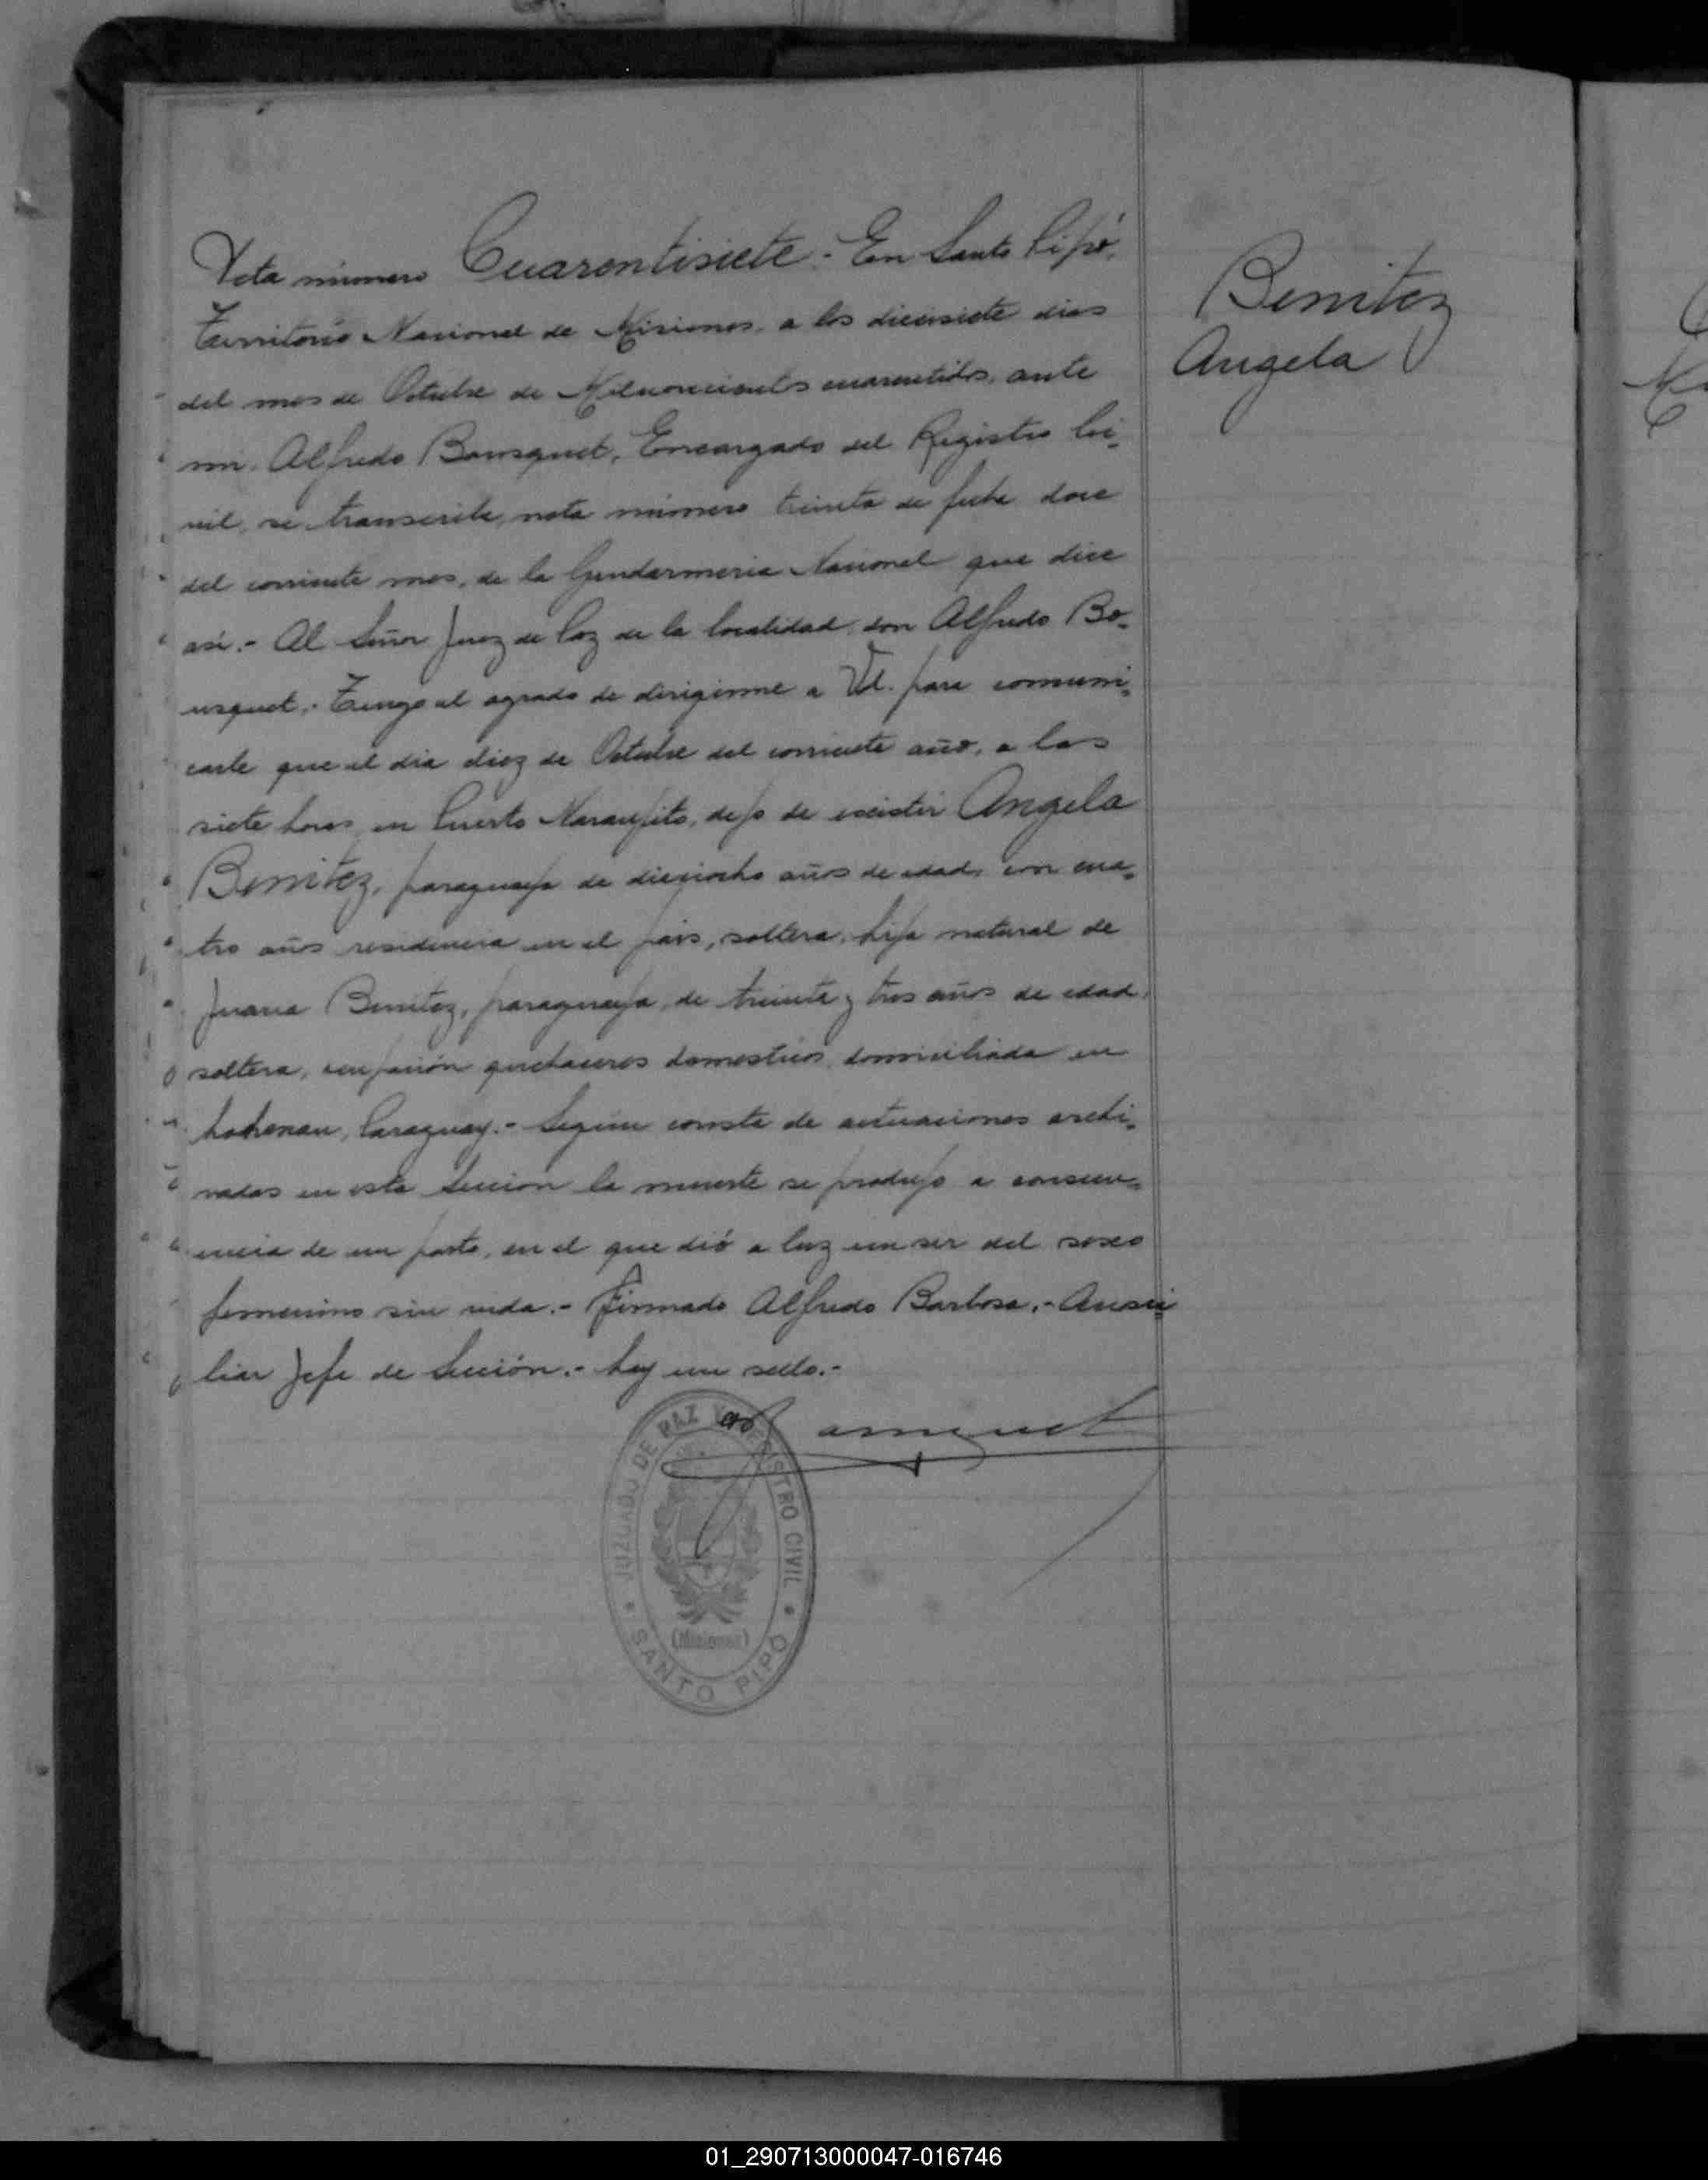 Acta número Cuarentisiete.- En Santo Pipó,
Territorio Nacional de Misiones, a los diecisiete dias
del mes de Octubre de Milnovecientos cuarentidos, ante
mi, Alfredo Bousquet, Encargado del Registro Ci-
vil, se transcribe, nota número treinta de fecha doce
del corriente mes, de la Gendarmeria Nacional que dice
asi.- Al Señor Juez de Paz de la localidad, don Alfredo Bo-
usquet.- Tengo el agrado de dirigirme a Vd. para comuni-
carle que el dia diez de Octubre del corriente año, a las
siete horas, en Puerto Naranjito, dejo de existir Angela
Benitez, paraguaya de dieciocho años de edad, con cua-
tro años residencia en el pais, soltera, hija natural de
Juana Benitez, paraguaya, de treinta y tres años de edad,
soltera, ocupación quehaceres domesticos, domiciliada en
hohenau, Paraguay.- Según consta de actuaciones archi-
vadas en esta Sección la muerte se produjo a consecu-
encia de un parto, en el que dió a luz un ser del sexo
femenino sin vida.- Firmado Alfredo Barbosa.- Auxi-
liar Jefe de Sección.- hay un sello.-
Benitez
Angela
JUZGADO DE PAZ Y REGISTRO CIVIL
(Misiones)
SANTO PIPO
01_290713000047-016746